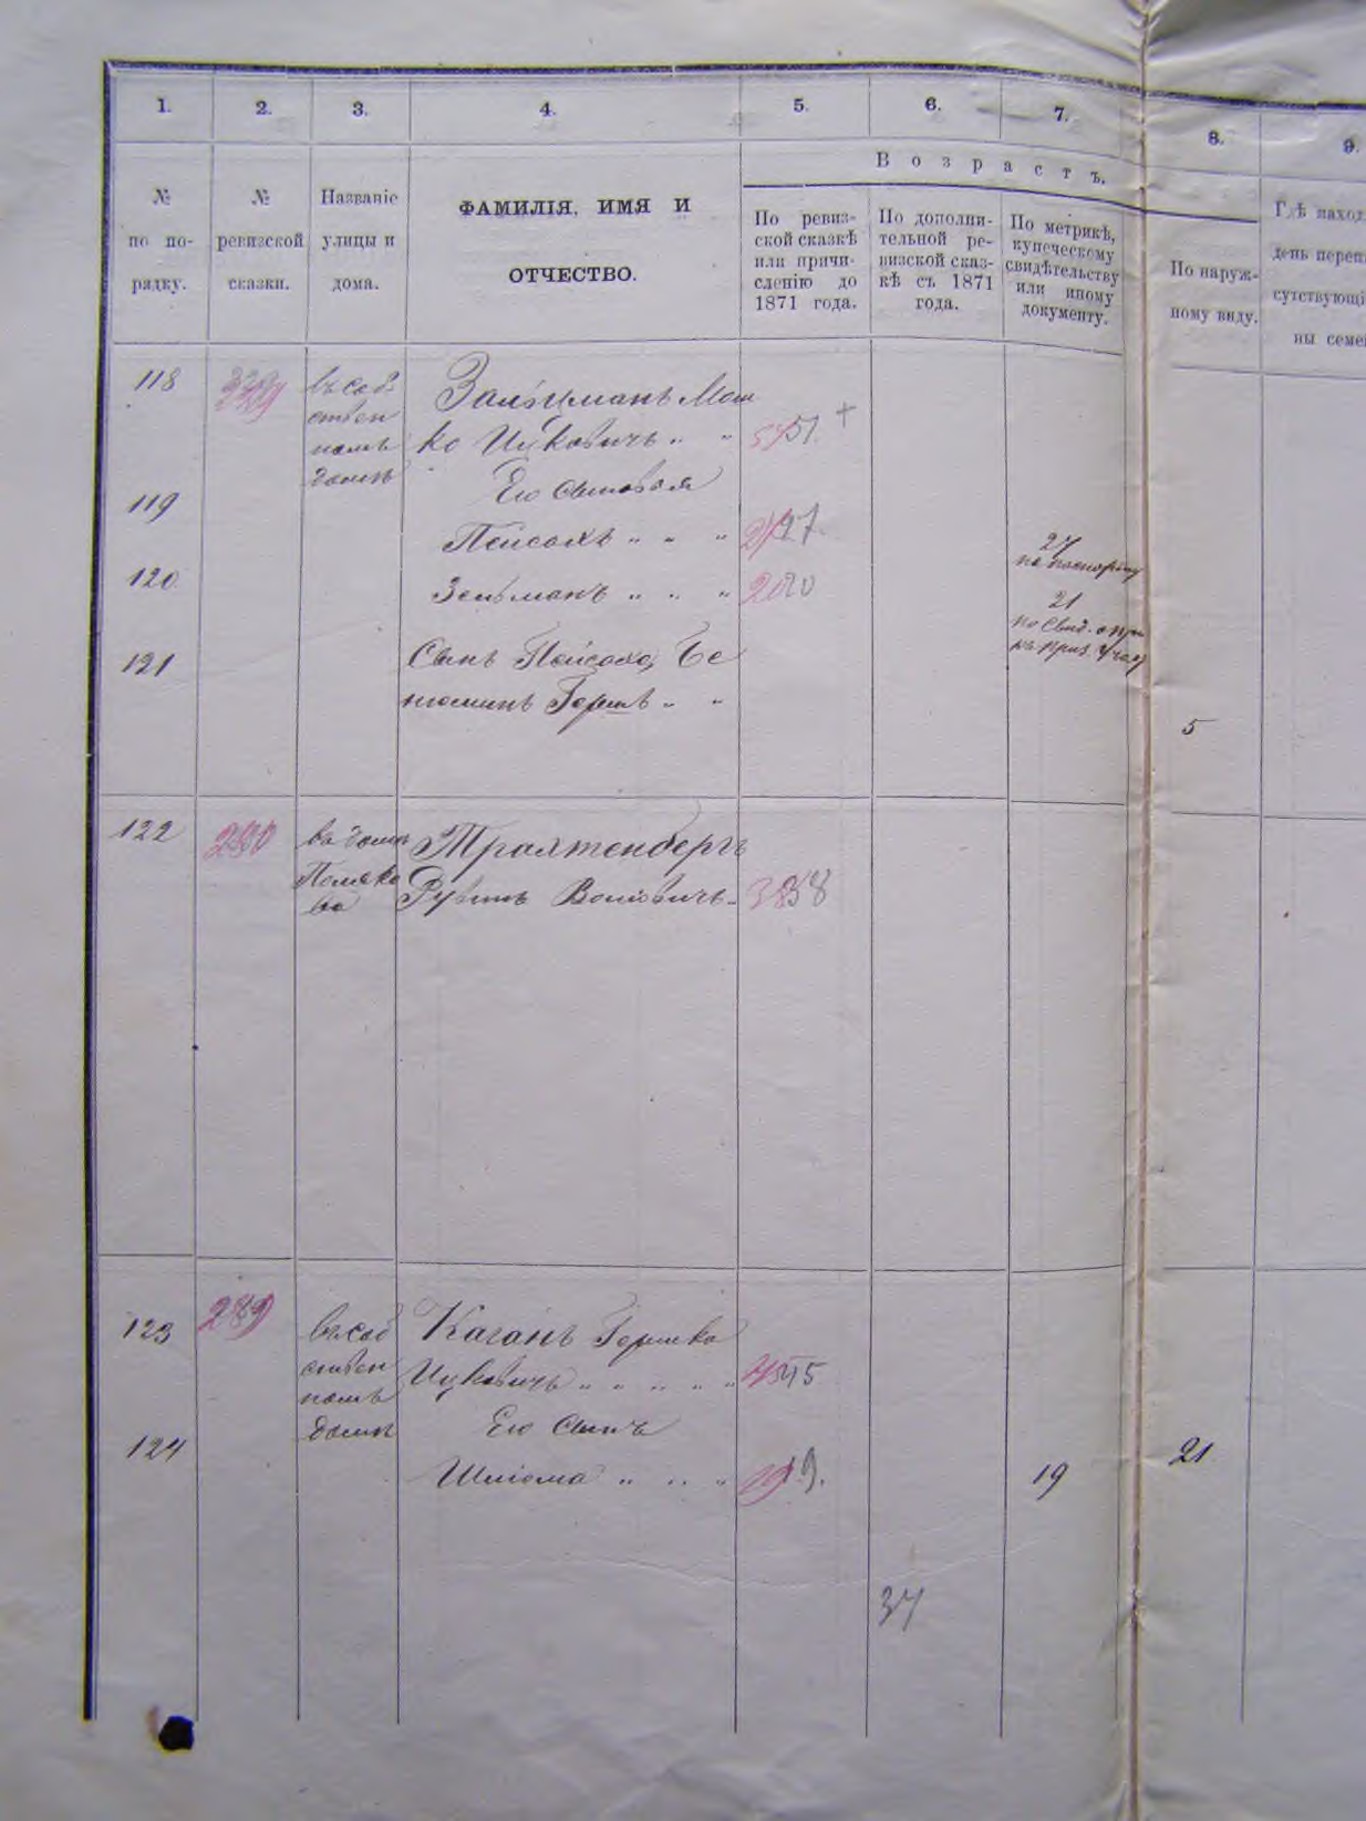 1. 2. 3. 4. 5. 6. 7. 8. 9.
Возрастъ.
№
по по-
рядку.
№
ревизской
сказки.
Названіе
улицы и
дома.
ФАМИЛІЯ, ИМЯ И
ОТЧЕСТВО.
По ревиз-
ской сказкѣ
или причи-
сленію до
1871 года.
По дополни-
тельной ре-
визской сказ-
кѣ съ 1871
года.
По метрикѣ,
купеческому
свидѣтельству
или иному
документу.
По наруж-
ному виду.
Гдѣ наход
день переп
сутствующі
ны семе
118
въ соб
ствен
номъ
домѣ
Мош
ко Ицковичъ " " 51. +
Его сыновья
119
Пейсахъ " " " 27.
27
по паспорту
120
Зельманъ " " " 20 20
21
по свид. о при
къ приз. учас
121
Сынъ Пейсаха, Бе
ніоминъ Гершъ " "
5
122 290
въ домѣ
Поляко
ва
Трахтенбергъ
Рувинъ Волковичъ 38 38
123 289
въ соб
ствен
номъ
домѣ
Каганъ Гершко
Ицковичъ " " " " " 45 45
Его сынъ
124
Шліома " " " 19 19.
19
21
34